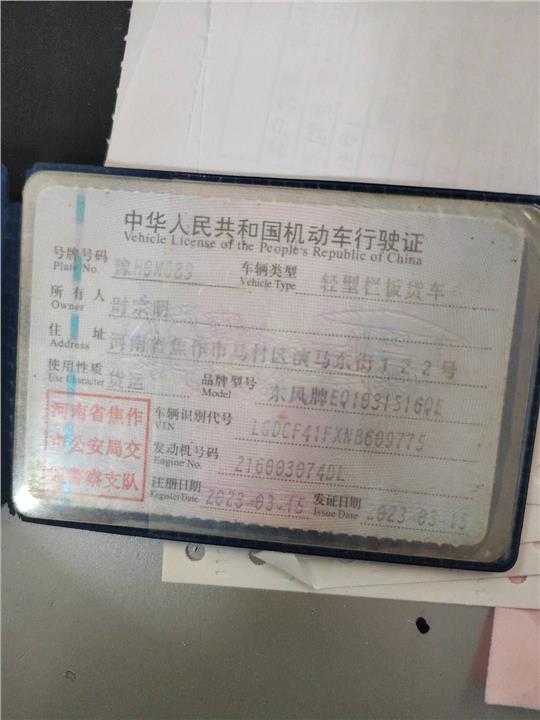 中华人民共和国机动车行驶证
Vehicle License of the People's Republic of China
号牌号码 Plate No. 豫H9X689 车辆类型 Vehicle Type 轻型栏板货车
所有人 Owner 时宗明
住址 Address 河南省焦作市马村区演马东街122号
使用性质 Use Character 货运 品牌型号 Model 东风牌EQ1031S16QE
河南省焦作
市公安局交
通警察支队
车辆识别代号 VIN LGDCF41FXNB609775
发动机号码 Engine No. 216003074DL
注册日期 Register Date 2023-03-15 发证日期 Issue Date 2023-03-15